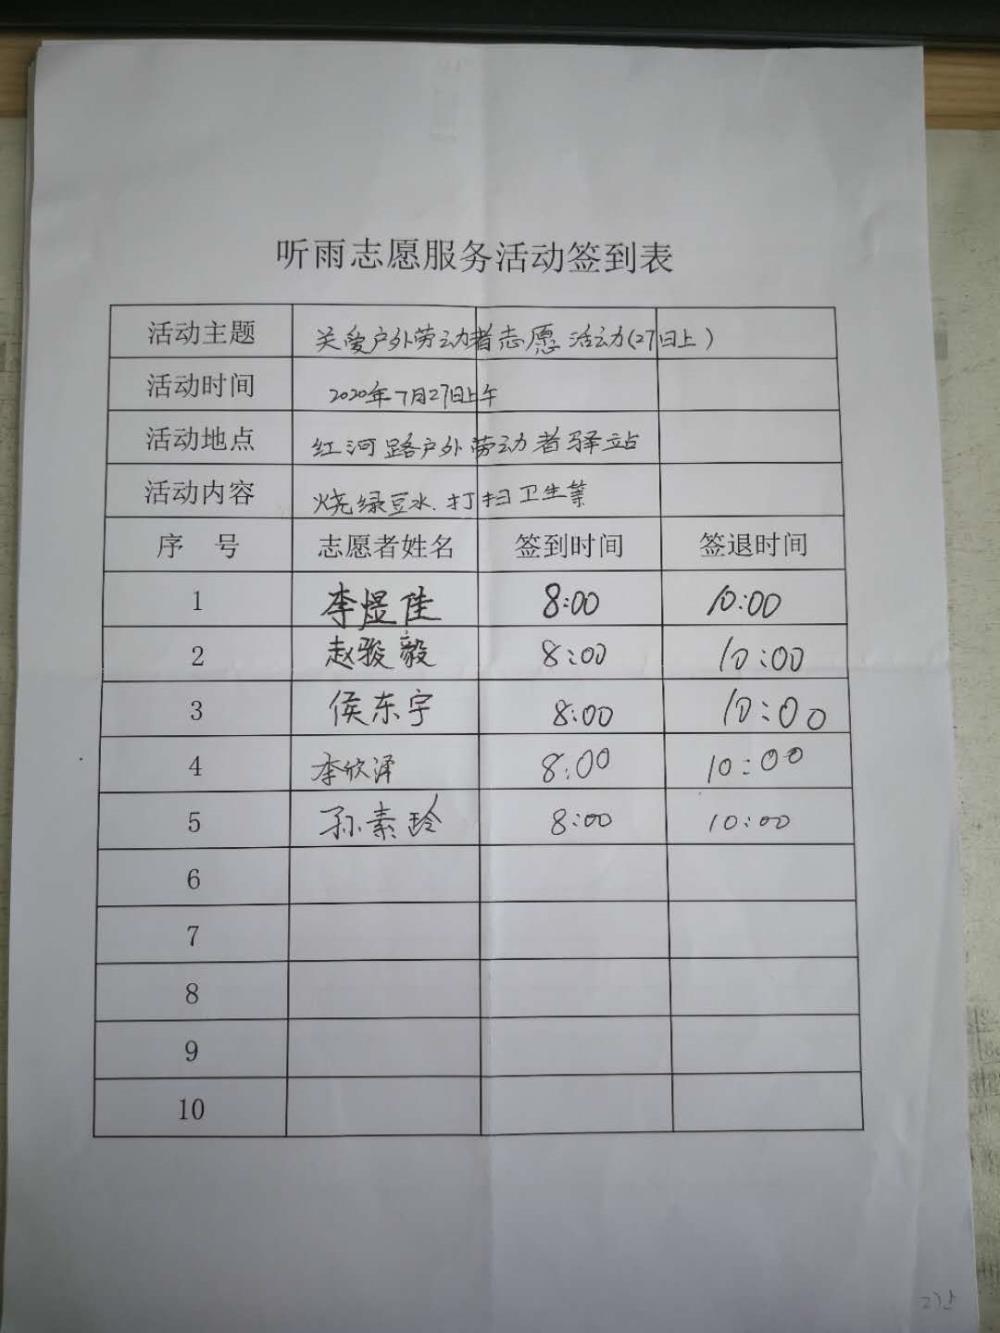 听雨志愿服务活动签到表
活动主题 关爱户外劳动者志愿活动(27日上)
活动时间 2020年7月27日上午
活动地点 红河路户外劳动者驿站
活动内容 烧绿豆水.打扫卫生等
序 号 志愿者姓名 签到时间 签退时间
1 李煜佳 8:00 10:00
2 赵骏毅 8:00 10:00
3 侯东宇 8:00 10:00
4 李欣泽 8:00 10:00
5 孙素玲 8:00 10:00
6
7
8
9
10